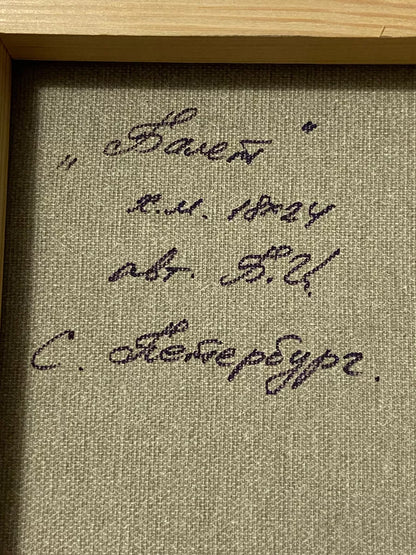 „Балет"
х.м. 18×24
авт. Б.Ц.
С. Петербург.